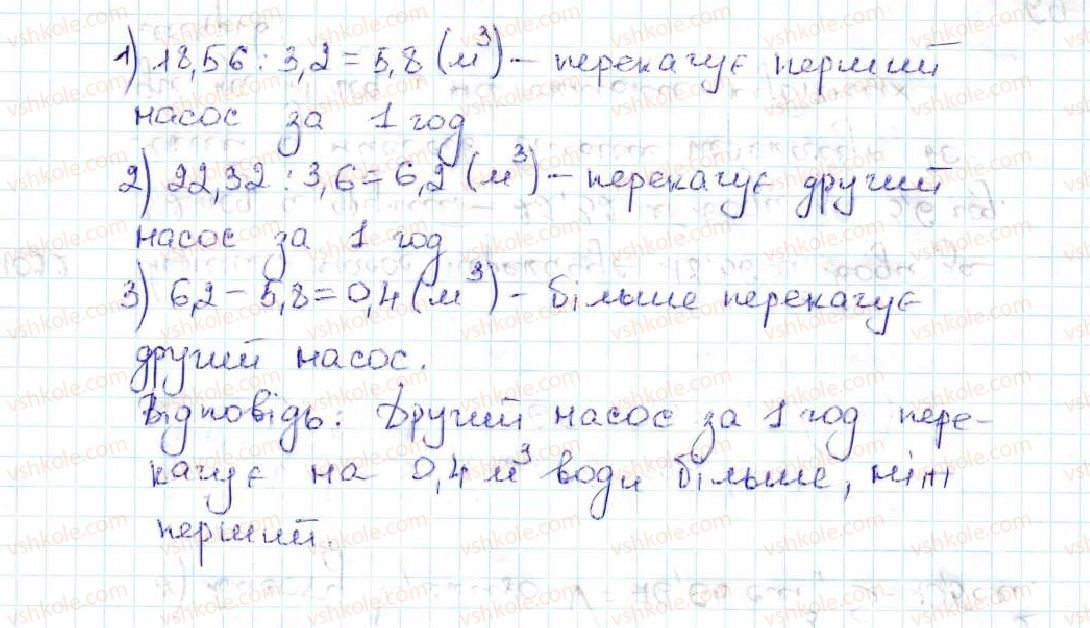 1) 18,56 : 3,2 = 5,8 (м³) – перекачує перший
насос за 1 год
2) 22,32 : 3,6 = 6,2 (м³) – перекачує другий
насос за 1 год
3) 6,2 – 5,8 = 0,4 (м³) – більше перекачує
другий насос.
Відповідь: Другий насос за 1 год пере-
качує на 0,4 м³ води більше, ніж
перший.